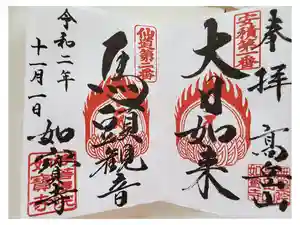 奉拝
安積第一番
大日如来
高岳山
仙道第三番
馬頭観音
令和二年
十一月一日
如寳寺